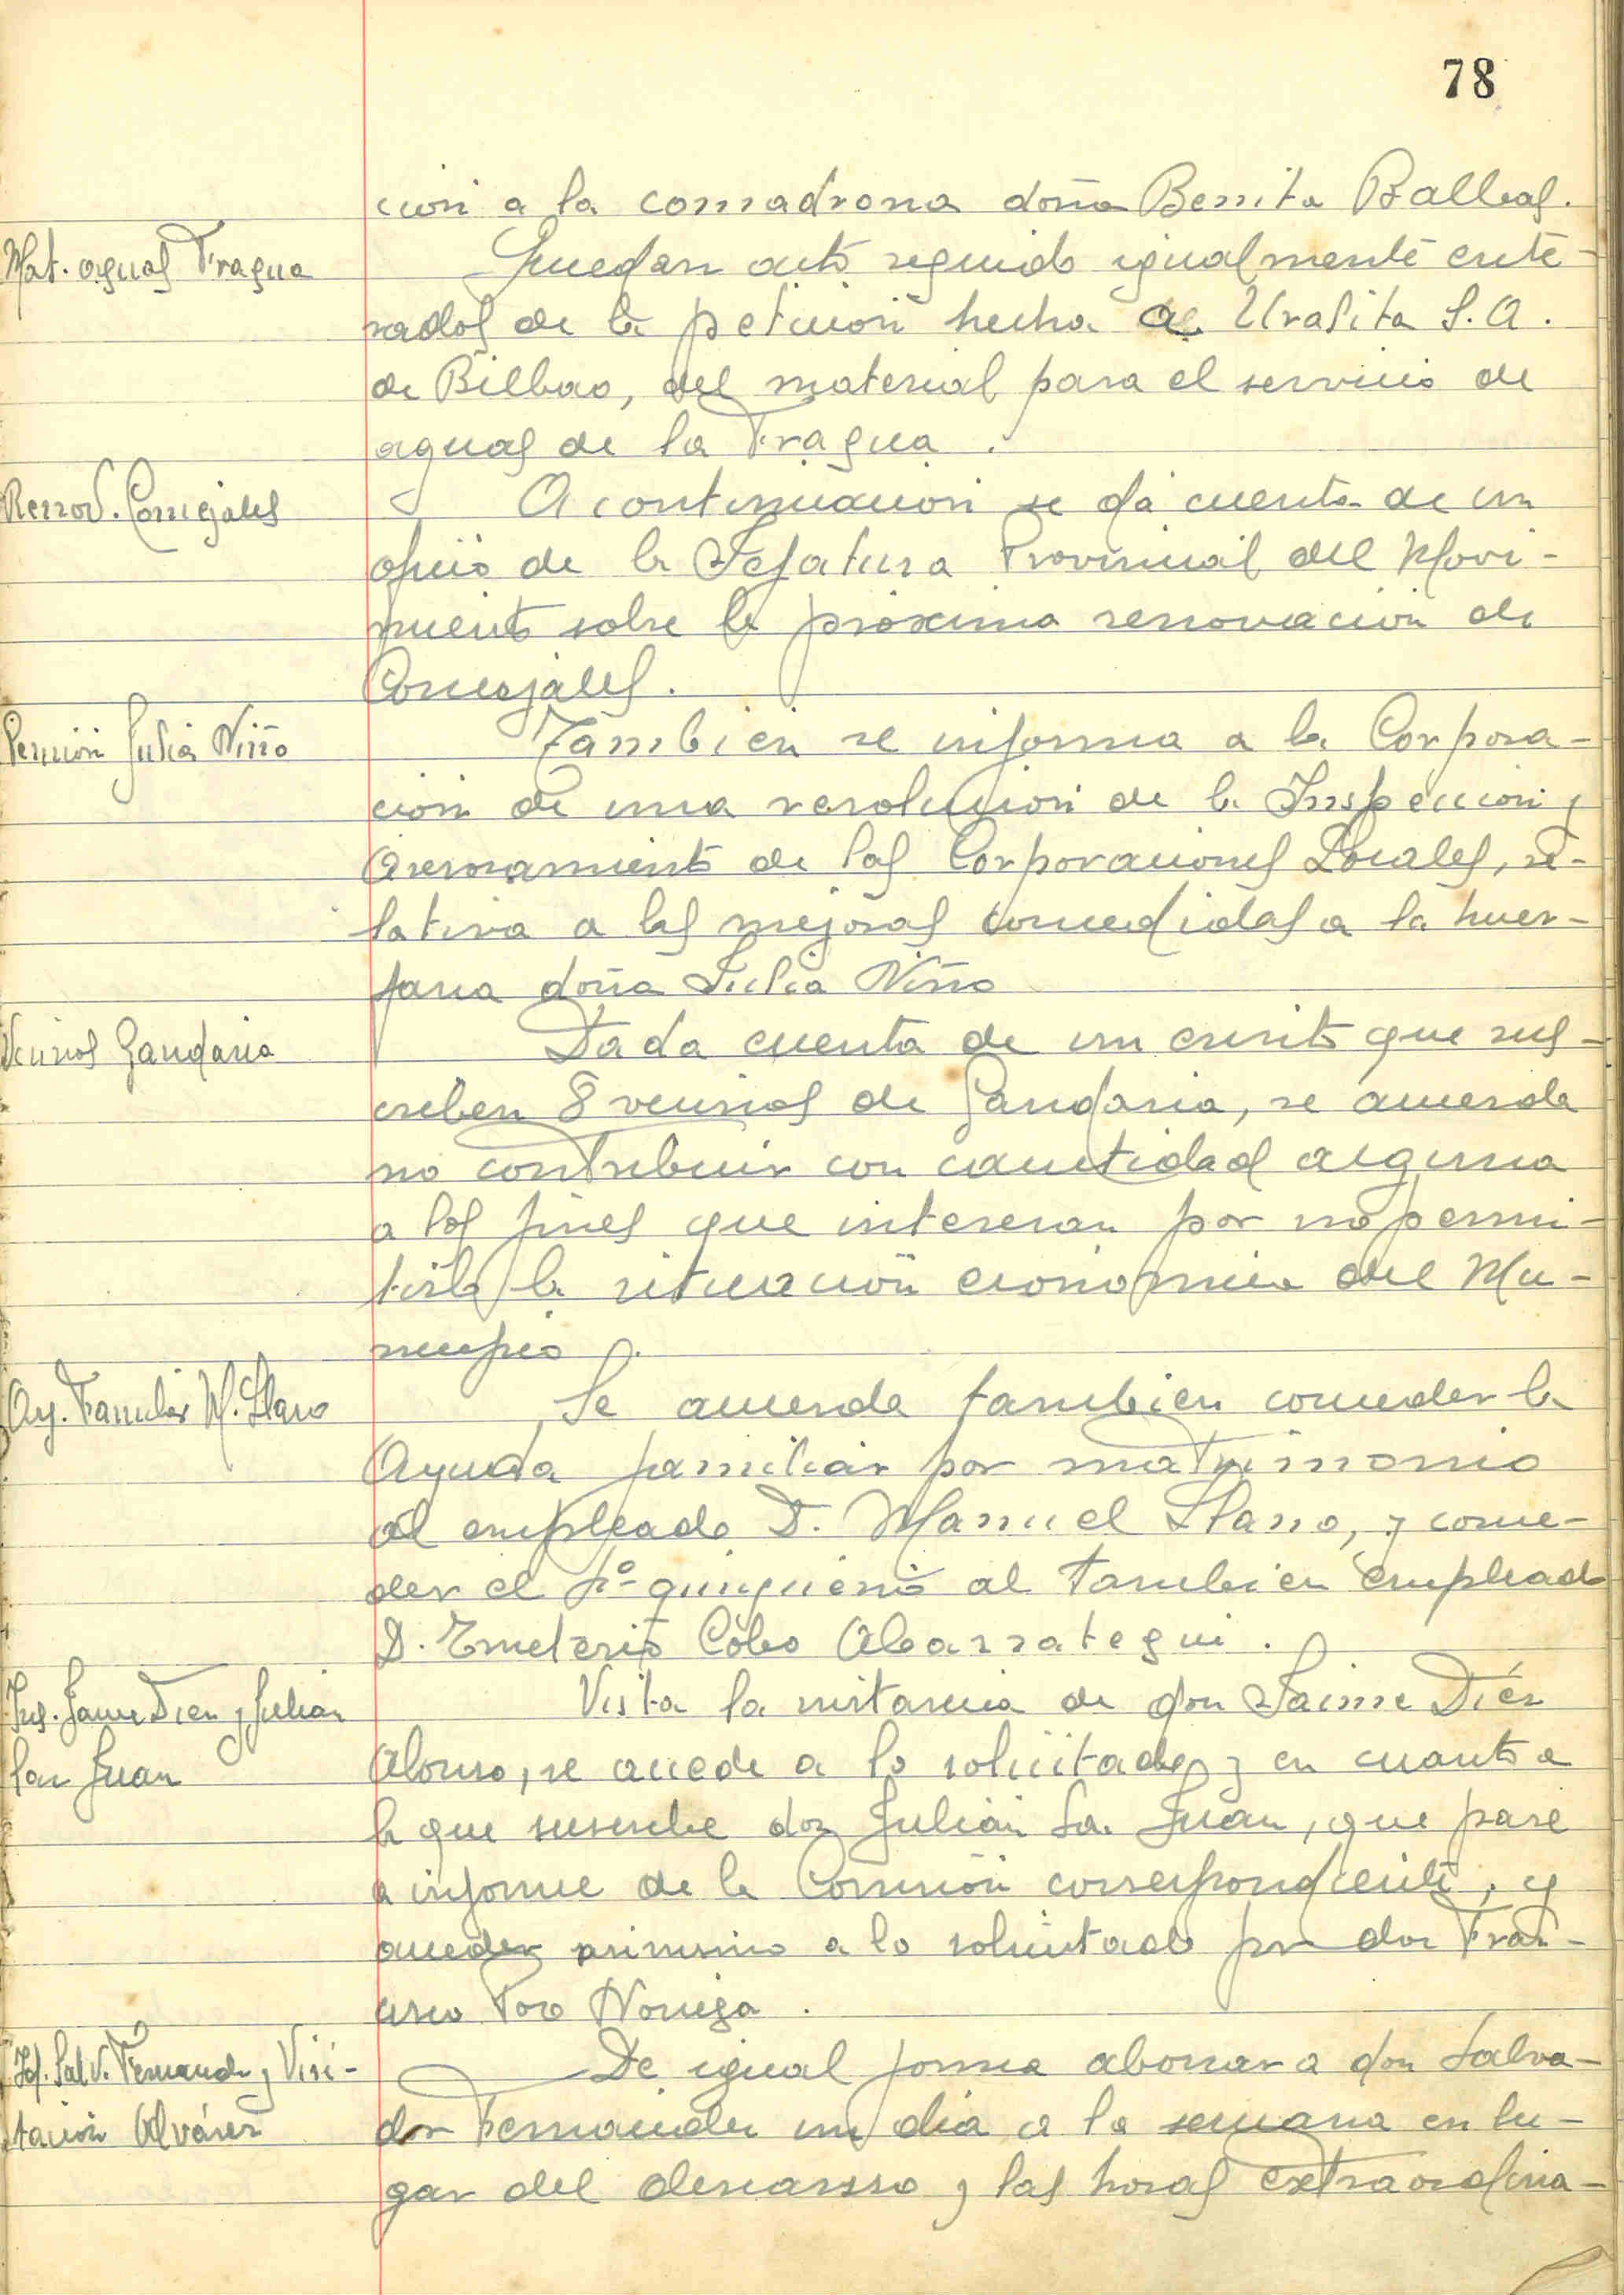 78
ción a la comadrona doña Benita Balleas.
Mat. aguas Fragua
Quedan acto seguido igualmente ente-
rados de la petición hecha a Uralita S.A.
de Bilbao, del material para el servicio de
aguas de la Fragua.
Renov. Concejales
A continuación se dá cuenta de un
oficio de la Jefatura Provincial del Movi-
miento sobre la próxima renovación de
Concejales.
Pensión Julia Niño
También se informa a la Corpora-
ción de una resolución de la Inspección y
Asesoramiento de las Corporaciones Locales, re-
lativa a las mejoras concedidas a la huer-
fana doña Julia Niño
Vecinos Gandaria
Dada cuenta de un escrito que sus-
criben 8 vecinos de Gandaria, se acuerda
no contribuir con cantidad alguna
a los fines que interesan por no permi-
tirlo la situación económica del Mu-
nicipio.
Ay. Familiar M. Llano
Se acuerda también conceder la
Ayuda familiar por matrimonio
al empleado D. Manuel Llano, y conce-
der el 1º quinquenio al también empleado
D. Emeterio Cobo Abarrategui.
Ins. Jaime Diez y Julián
San Juan
Vista la instancia de don Jaime Diéz
Alonso, se accede a lo solicitado y en cuanto a
la que suscribe don Julián San Juan, que pase
a informe de la Comisión correspondiente, y
acceder asimismo a lo solicitado por don Fran-
cisco Toro Noriega.
Sol. Salv. Fernandz y Visi-
tación Alvárez
De igual forma abonar a don Salva-
dor Fernandez un día a la semana en lu-
gar del descansso y las horas extraordina-